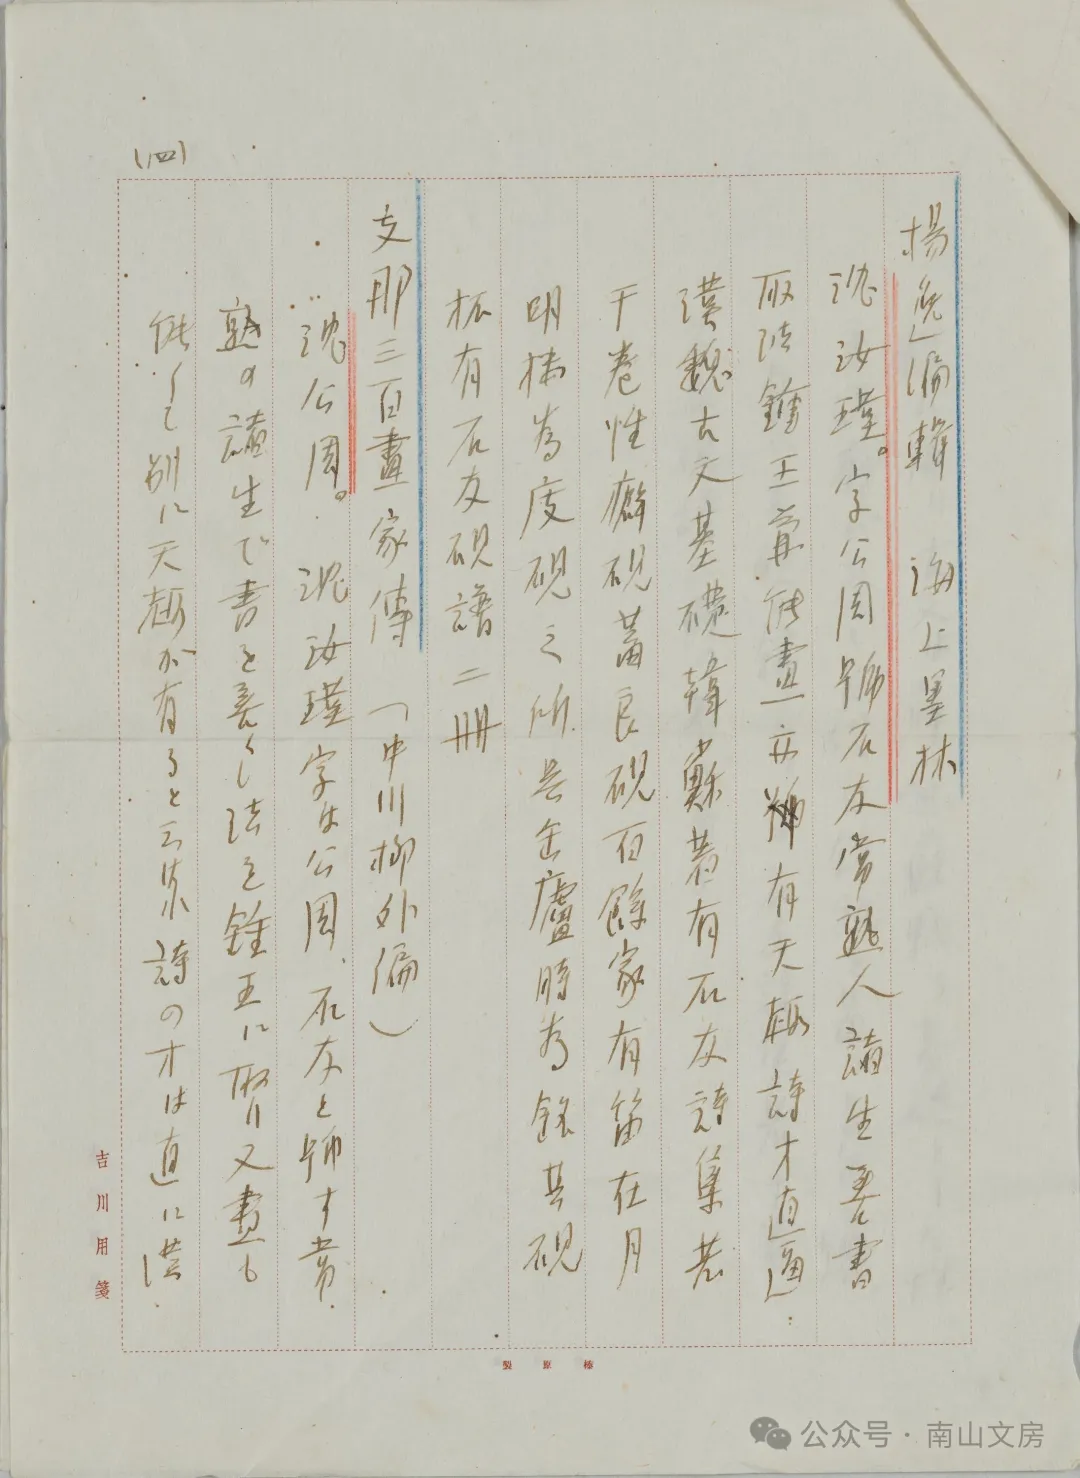 (四)
楊逸編輯 海上墨林
沈汝瑾。字公周號石友常熟人諸生善書
取法鍾王兼能畫亦有天趣詩才直逼
漢魏古文基礎韓蘇著有石友詩集若
干卷性癖硯蓄良硯百餘家有笛在月
明樓為度硯之所吳缶廬時為銘其硯
拓有石友硯譜二冊
支那三百畫家傳 (中川柳外偏)
沈公周。沈汝瑾字は公周、石友と號す常
熟の諸生で書を善くし法を鍾王に取り又畫も
能くして別に天趣が有ると云はれ詩の才は直に漢
吉川用箋
榛原製
公众号·南山文房